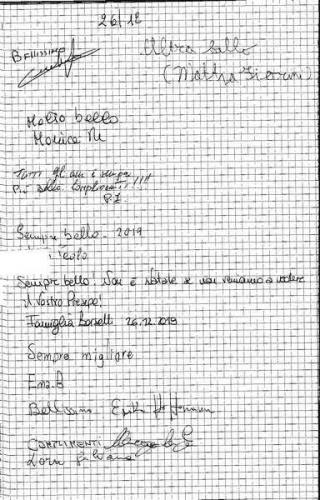 26/12
BELLISSIMO
Ultra bello
Molto bello
Monica M
Tutti gli anni è sempre
Più bello. Complimenti!!!
P.Z.
Sempre bello - 2019
Sempre bello! Non è Natale se non veniamo a vedere
il Vostro Presepe!
Famiglia Borselli 26.12.2019
Sempre migliore
Enza B
Bellissimo Erika Hoffmann
COMPLIMENTI